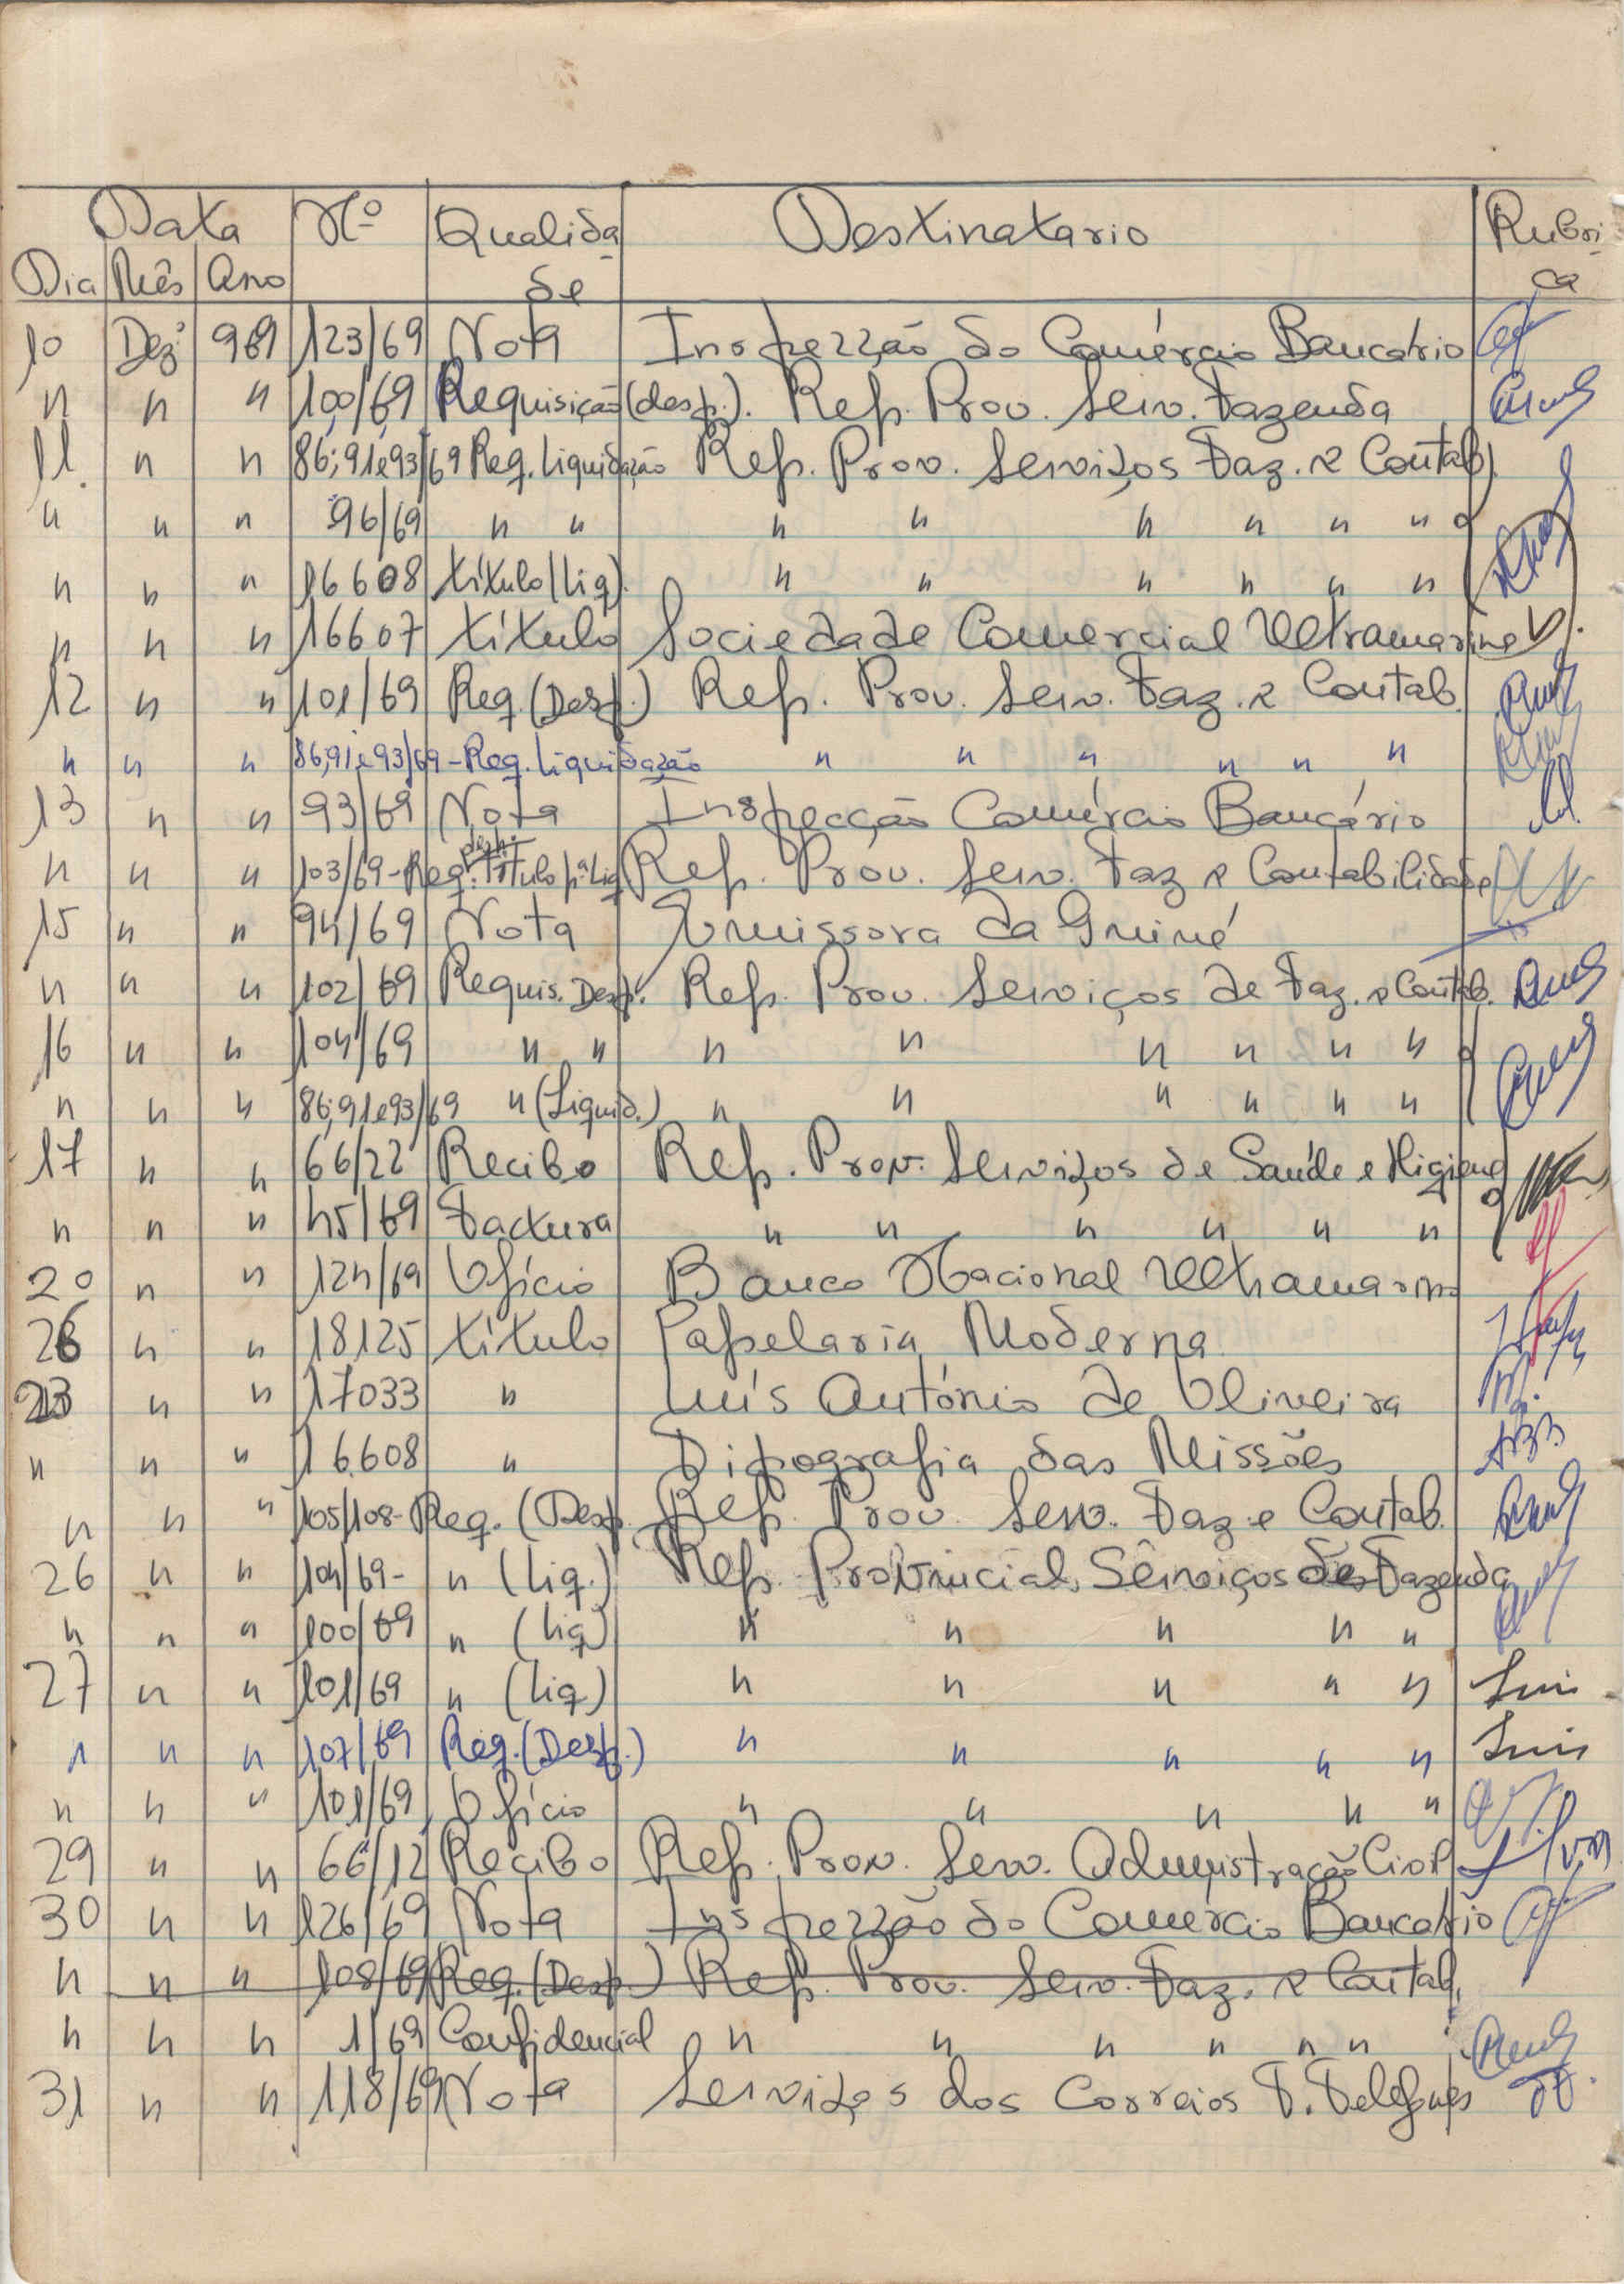 Data Nº Qualida- Destinatario Rubri-
Dia Mês Ano de ca
10 Dez 969 123/69 Nota Inspecção do Comércio Bancário
" " " 100/69 Requisição (desp.). Rep. Prov. Serv. Fazenda
11. " " 86;91e93/69 Req. Liquidação Rep. Prov. Serviços Faz. e Contab.
" " " 96/69 " " " " " " " "
" " " 16608 título (Liq). " " " " " "
" " " 16607 título Sociedade Comercial Ultramarina
12 " " 101/69 Req. (Desp.) Rep. Prov. Serv. Faz. e Contab.
" " " 86,91e93/69-Req. Liquidação " " " " " "
13 " " 93/69 Nota Inspecção Comércio Bancário
" " " 103/69-Req. Título pª Liq Rep. Prov. Serv. Faz e Contabilidade
15 " " 94/69 Nota Emissora da Guiné
" " " 102/69 Requis. Desp. Rep. Prov. Serviços de Faz. e Contab.
16 " " 104/69 " " " " " " " "
" " " 86;91e93/69 " (Liquid.) " " " " " "
17 " " 66/22 Recibo Rep. Prov. Serviços de Saúde e Higiene
" " " 45/69 Factura " " " " " "
20 " " 124/69 Ofício Banco Nacional Ultramarino
26 " " 18125 título Papelaria Moderna
23 " " 17033 " Luís António de Oliveira
" " " 16.608 " Tipografia das Missões
" " " 105/108-Req. (Desp. Rep. Prov. Serv. Faz e Contab.
26 " " 104/69- " (Liq.) Rep. Provincial Serviços de Fazenda
" " " 100/69 " (Liq) " " " " "
27 " " 101/69 " (Liq) " " " " " Luis
" " " 107/69 Req. (Desp.) " " " " " Luis
" " " 101/69 Ofício " " " " "
29 " " 66/12 Recibo Rep. Prov. Serv. Administração Civil
30 " " 126/69 Nota Inspecção do Comércio Bancário
" " " 108/69 Req. (Desp.) Rep. Prov. Serv. Faz. e Contab.
" " " 1/69 Confidencial " " " " " "
31 " " 118/69 Nota Serviços dos Correios T.